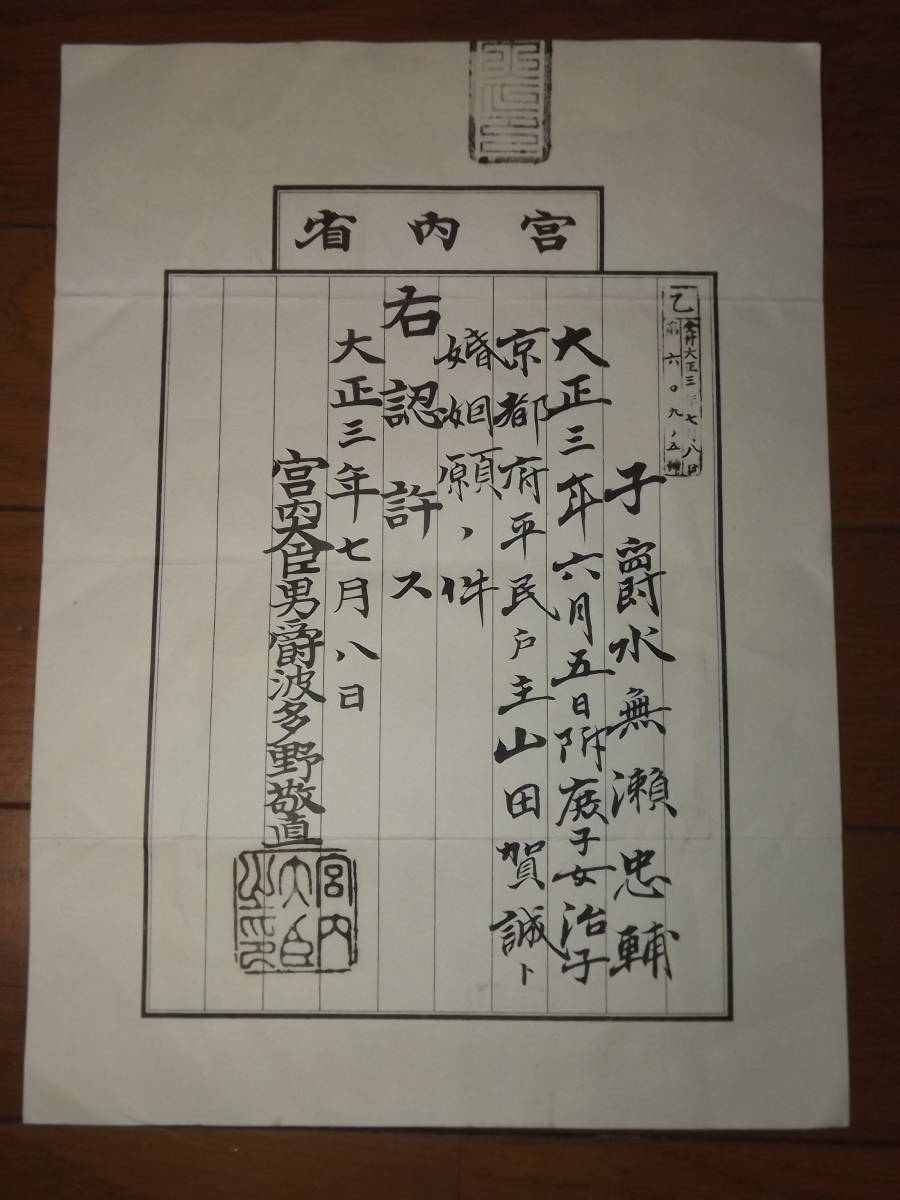 宮内省
乙
受付大正三年七月八日
第六〇九ノ五號
子爵水無瀬忠輔
大正三年六月五日附庶子女治子
京都府平民戸主山田賀誠ト
婚姻願ノ件
右認許ス
大正三年七月八日
宮内大臣男爵波多野敬直
宮内大臣之印